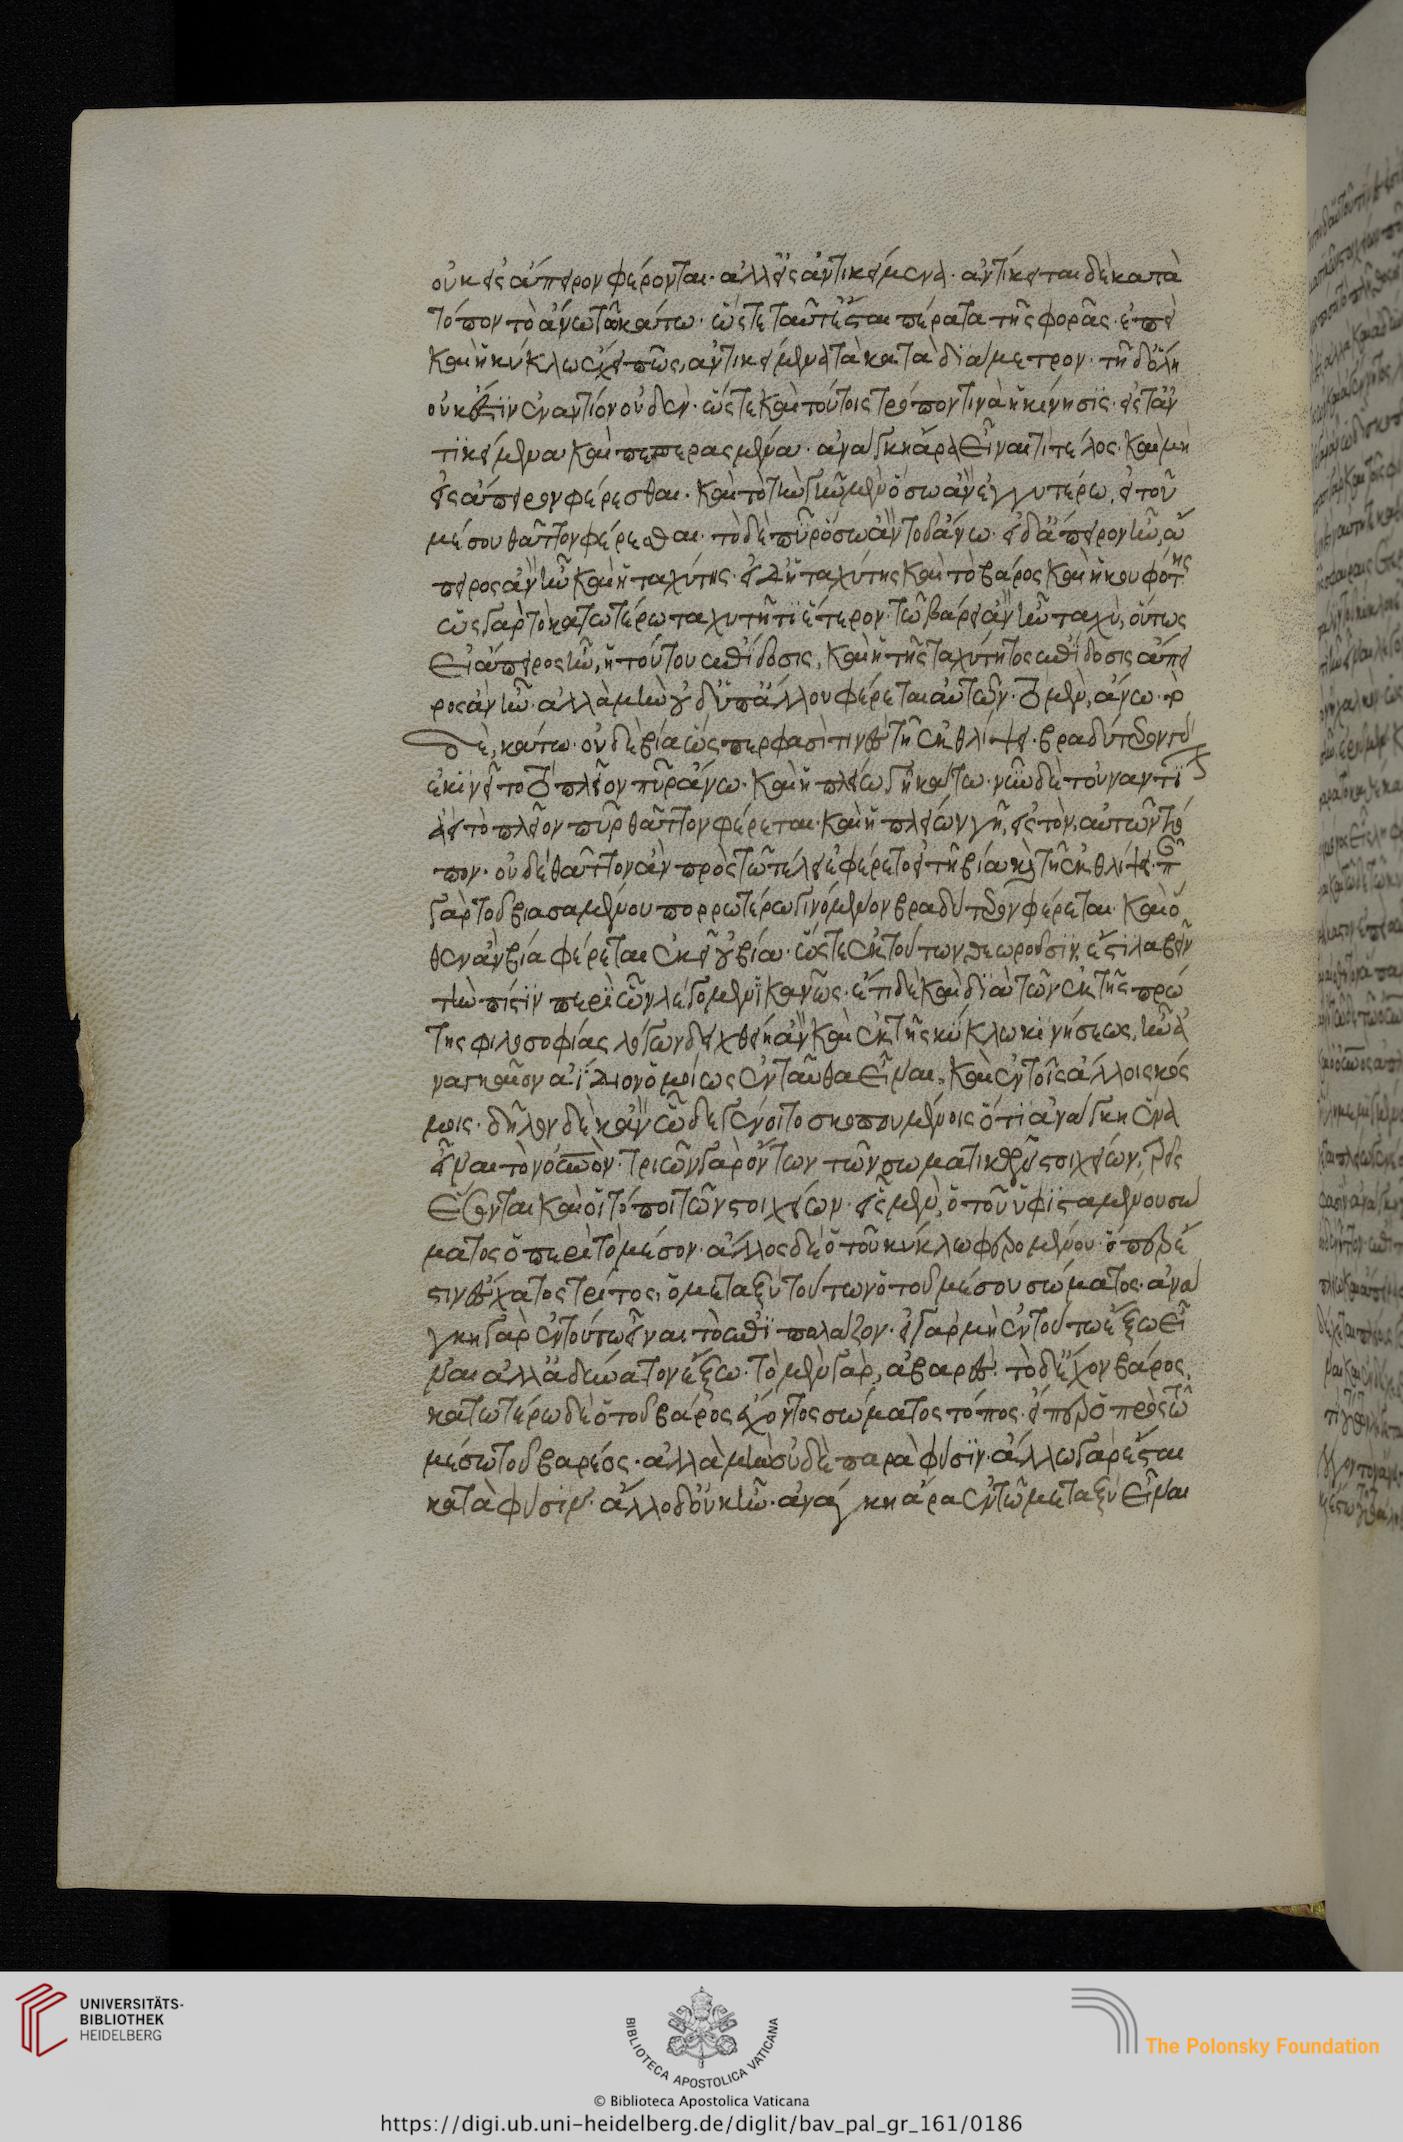 οὐκ εἰς ἄπειρον φέρονται· ἀλλ εἰς ἀντικείμενα· ἀντίκειται δὲ κατὰ
τόπον τὸ ἄνω τῶ κάτω· ὥστε ταῦτ ἔσται πέρατα τῆς φορᾶς· ἐπεὶ
καὶ ἡ κύκλω ἔχει πῶς, ἀντικείμενα τὰ κατὰ διάμετρον· τῆ δ ὅλη
οὐκ ἔστιν ἐναντίον οὐδέν· ὥστε καὶ τούτοις τρόπον τινὰ ἡ κίνησις· εἰς τἀν
τικείμενα καὶ πεπερασμένα· ἀνάγκη ἄρα εἶναι τὶ τέλος· καὶ μὴ
εἰς ἄπειρον φέρεσθαι· καὶ τὸ τὴν γῆν μὲν ὅσω ἂν ἐγγυτέρω, εἶ τοῦ
μέσου θᾶττον φέρεσθαι· τὸ δὲ πῦρ ὅσω ἂν τοῦ ἄνω· εἰ δ ἄπειρον ἦν, ἄ
πειρος ἂν ἦν καὶ ἡ ταχύτης· εἰ δ ἡ ταχύτης καὶ τὸ βάρος καὶ ἡ κουφότης
ὡς γὰρ τὸ κατωτέρω ταχυτῆτι ἕτερον· τῶ βάρει ἂν ἦν ταχύ, οὕτως
εἰ ἄπειρος ἦν, ἡ τούτου ἐπίδοσις, καὶ ἡ τῆς ταχύτητος ἐπίδοσις ἄπει
ρος ἂν ἦν· ἀλλὰ μὴν οὐδ ὑπ ἄλλου φέρεται αὐτῶν· τὸ μὲν, ἄνω· τὸ
δὲ, κάτω· οὐδὲ βία ὥς περ φασὶ τινὲς τῆ ἐκθλίψει· βραδύτερον γὰρ
ἐκινεῖτο τὸ πλεῖον πῦρ ἄνω· καὶ ἡ πλείω γῆ κάτω· νῦν δὲ τοὐναντίον
ἀεὶ τὸ πλεῖον πῦρ θᾶττον φέρεται· καὶ ἡ πλείων γῆ, εἰς τὸν, αὐτῶν τό
πον· οὐδὲ θᾶττον ἂν πρὸς τῶ τέλει ἐφέρετο εἰ τῆ βία καὶ τῆ ἐκθλίψει· πάντα
γὰρ τοῦ βιασαμένου πορρωτέρω γινόμενον βραδύτερον φέρεται· καὶ ὅ
θεν ἂν βία φέρεται ἐκεῖ οὐ βία· ὥστε ἐκ τούτων θεωροῦσιν, ἔστι λαβεῖν
τὴν πίστιν περὶ ὧν λέγομεν ἱκανῶς· ἔτι δὲ καὶ διὰ τῶν ἐκ τῆς πρώ
της φιλοσοφίας λόγων δειχθείη ἂν καὶ ἐκ τῆς κύκλω κινήσεως, ἣν ἀ
ναγκαῖον ἀΐδιον ὁμοίως ἐνταῦθα εἶναι, καὶ ἐν τοῖς ἄλλοις κόσ
μοις· δῆλον δὲ κἂν ὧδε γένοιτο σκοπουμένοις ὅτι ἀνάγκη ἕνα
εἶναι τὸν οὐνὸν· τριῶν γὰρ ὄντων τῶν σωματικῶν στοιχείων, τρεῖς
ἔσονται καὶ οἱ τόποι τῶν στοιχείων· εἷς μὲν, ὁ τοῦ ὑφισταμένου σώ
ματος ὁ περὶ τὸ μέσον· ἄλλος δὲ ὁ τοῦ κύκλω φερομένου· ὅσπερ ἐ
στιν ἔσχατος τρίτος, ὁ μεταξὺ τούτων ὁ τοῦ μέσου σώματος· ἀνά
γκη γὰρ ἐν τούτω εἶναι τὸ ἐπιπολάζον· εἰ γὰρ μὴ ἐν τούτω ἔξω εἶ
ναι ἀλλ ἀδύνατον ἔξω· τὸ μὲν γὰρ, ἀβαρὲς· τὸ δ ἔχον βάρος,
κατωτέρω δὲ ὁ τοῦ βάρος ἔχοντος σώματος τόπος· εἴπερ ὁ πρὸς τῶ
μέσω τοῦ βαρέος· ἀλλὰ μὴν οὐδὲ παρὰ φύσιν· ἄλλω γὰρ ἔσται
κατὰ φύσιν· ἄλλο δ οὐκ ἦν· ἀνάγκη ἄρα ἐν τῶ μεταξὺ εἶναι
UNIVERSITÄTS-
BIBLIOTHEK
HEIDELBERG
BIBLIOTECA APOSTOLICA VATICANA
The Polonsky Foundation
© Biblioteca Apostolica Vaticana
https://digi.ub.uni-heidelberg.de/diglit/bav_pal_gr_161/0186